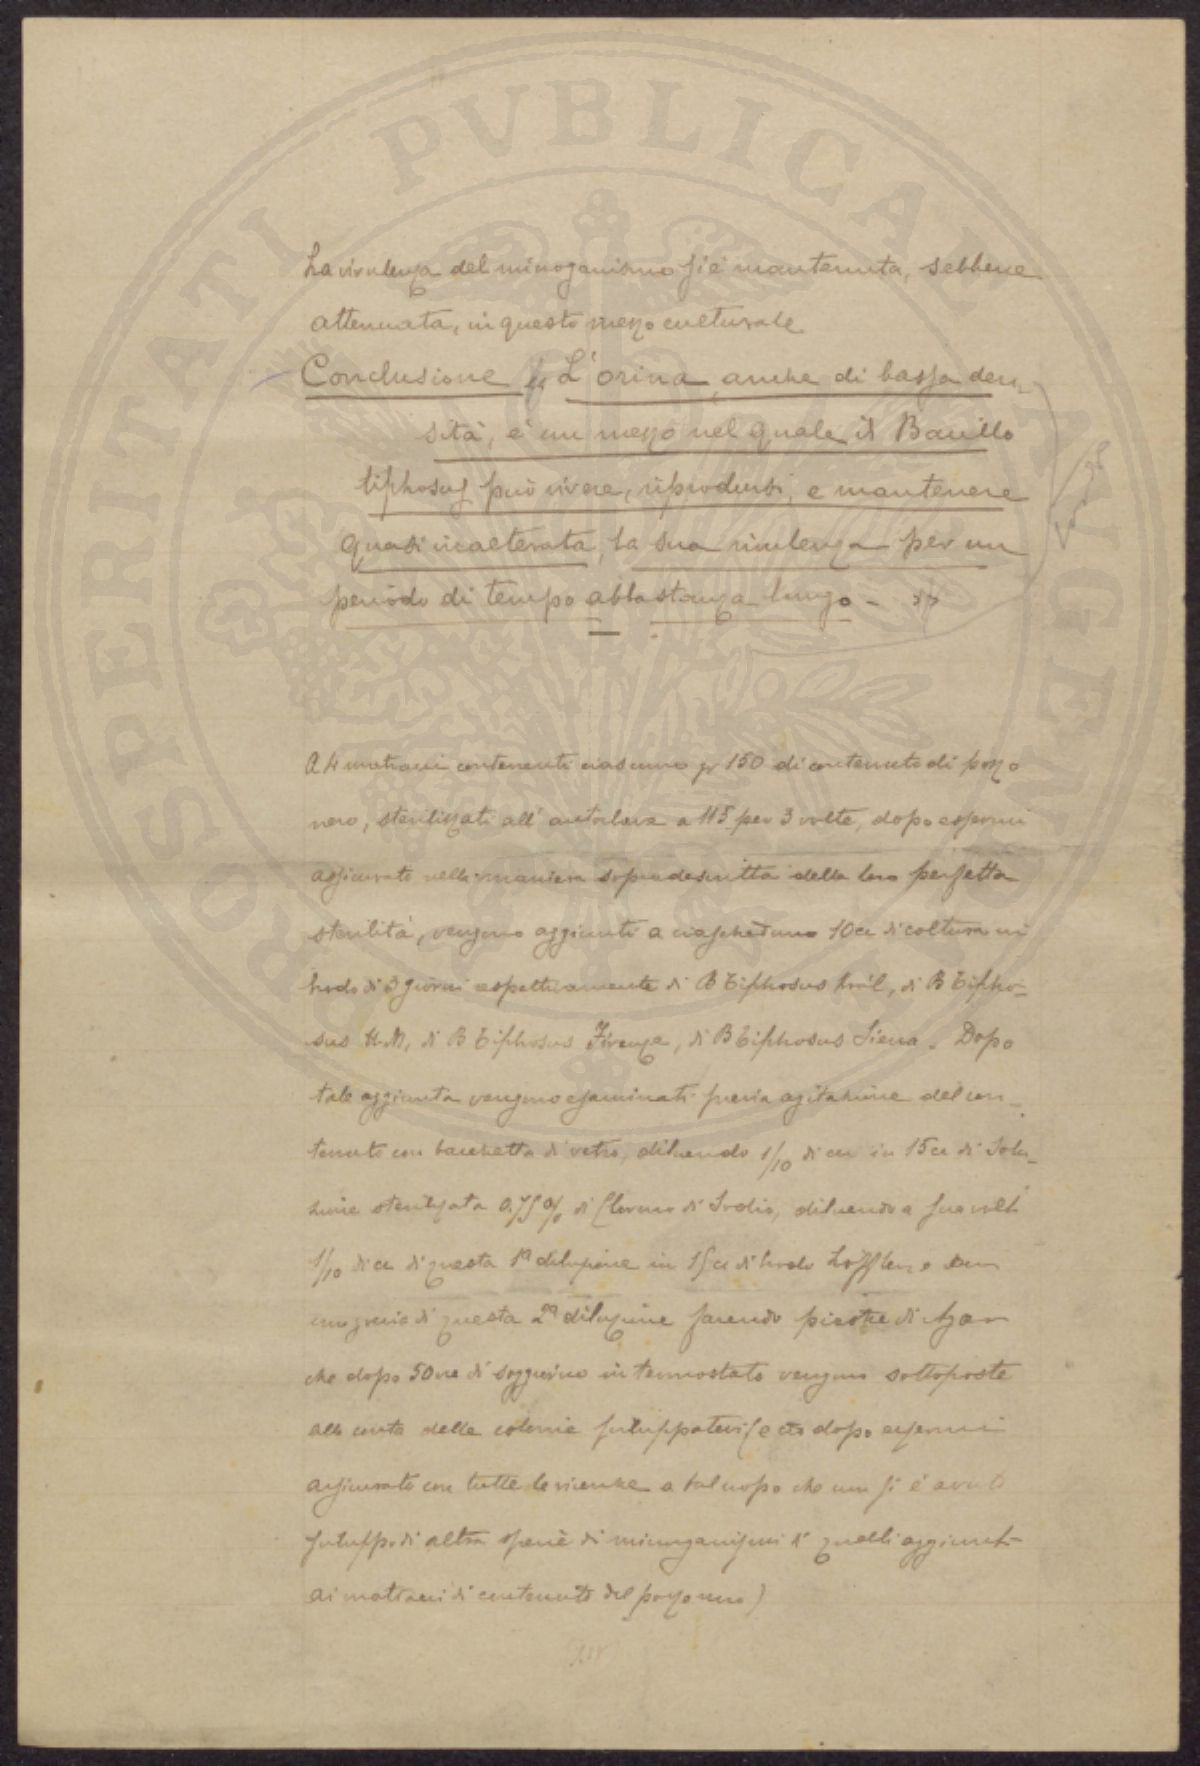 PROSPERITATI PVBLICAE AVGENDAE
La virulenza del microrganismo si è mantenuta, sebbene
attenuata, in questo mezzo culturale
Conclusione L'orina, anche di bassa den-
sità, è un mezzo nel quale il Bacillo
tiphosus può vivere, riprodursi, e mantenere
quasi inalterata, la sua virulenza per un
periodo di tempo abbastanza lungo -
A 4 matracci contenenti ciascuno gr 150 di contenuto di pozzo
nero, sterilizzati all'autoclave a 115 per 3 volte, dopo essermi
assicurato nella maniera sopradescritta della loro perfetta
sterilità, vengono aggiunti a ciascheduno 10cc di coltura in
brodo di 3 giorni rispettivamente di B Tiphosus Kràl, di B Tipho-
sus H.M, di B Tiphosus Firenze, di B Tiphosus Siena. Dopo
tale aggiunta vengono esaminati previa agitazione del con-
tenuto con bacchetta di vetro, diluendo 1/10 di cc in 15cc di Solu-
zione sterilizzata 0.75% di Cloruro di Sodio, diluendo a sua volta
1/10 di cc di questa 1ª diluzione in 15cc di brodo Löffler, e con
una goccia di questa 2ª diluzione facendo piastre di Agar
che dopo 50 ore di soggiorno in termostato vengono sottoposte
alla conta delle colonie sviluppatevisi e ciò dopo essermi
assicurato con tutte le ricerche a tal uopo che non si è avuto
sviluppo di altra specie di microrganismi di quelli aggiunti
ai matracci di contenuto del pozzo nero)